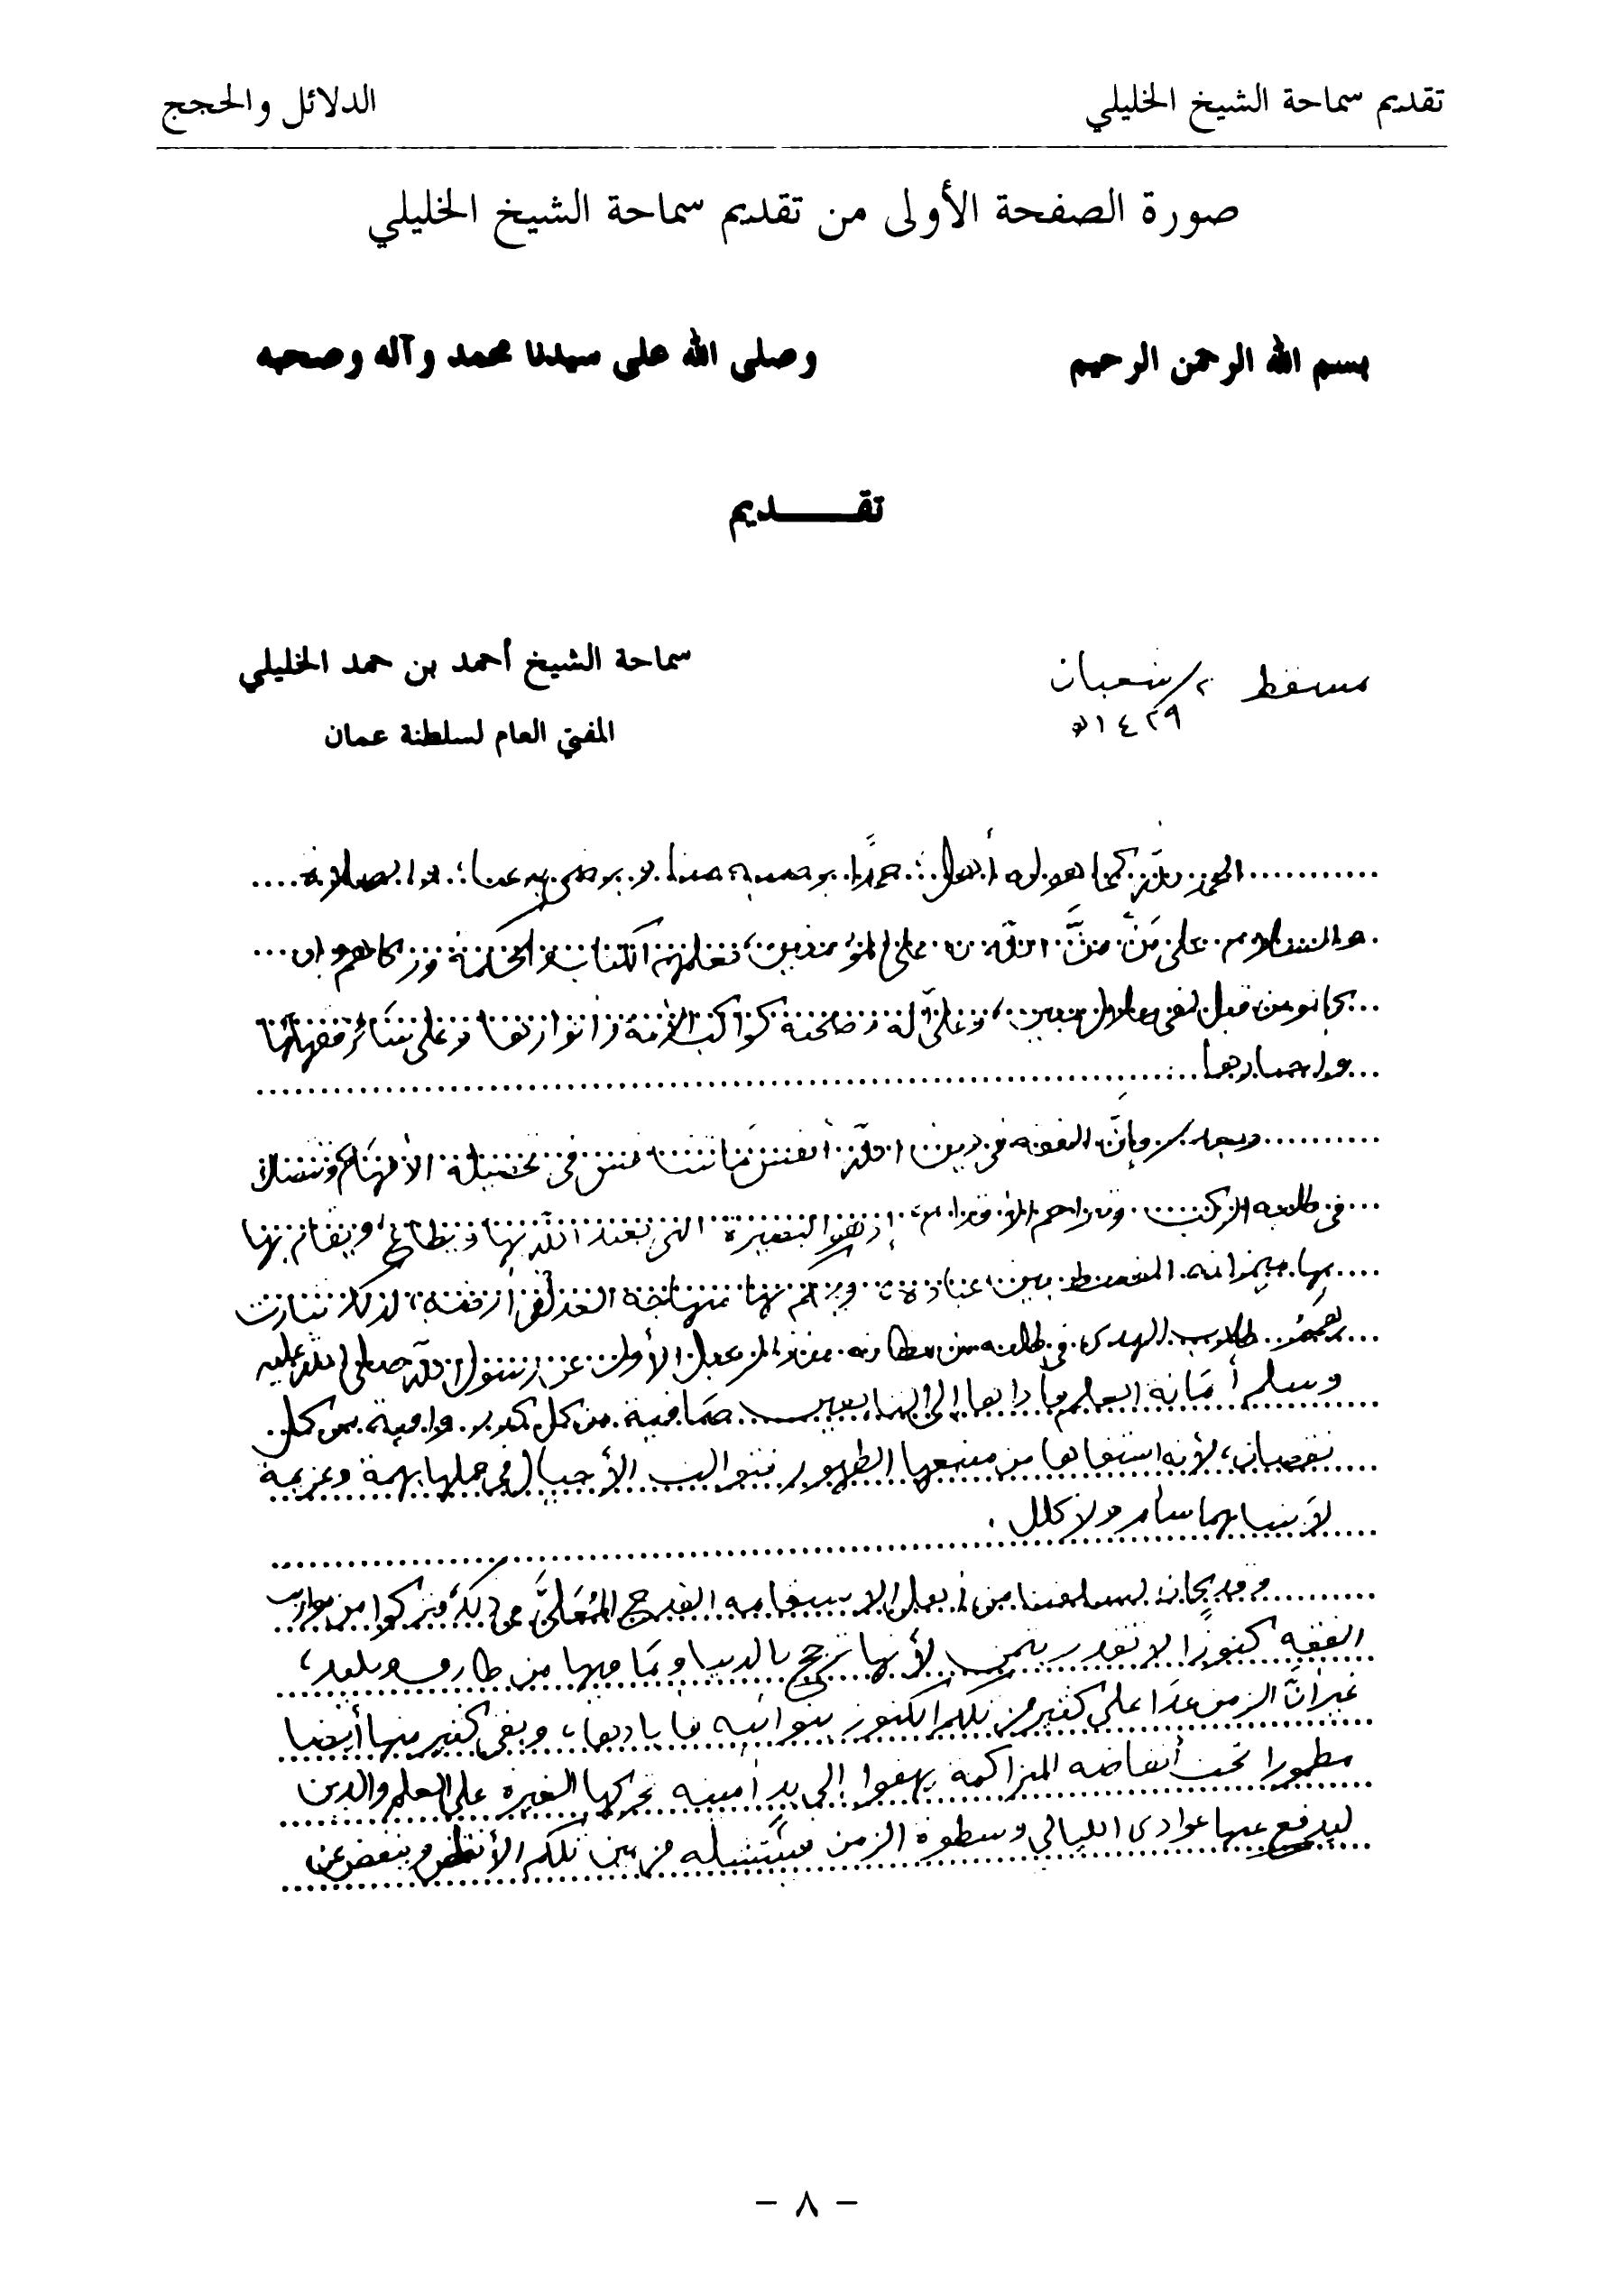 تقديم سماحة الشيخ الخليلي
الدلائل والحجج
صورة الصفحة الأولى من تقديم سماحة الشيخ الخليلي
بسم الله الرحمن الرحيم
وصلى الله على سيدنا محمد وآله وصحبه
تقـــــديم
سماحة الشيخ أحمد بن حمد الخليلي
المفتي العام لسلطنة عمان
مسقط ٢/ شعبان
١٤٢٩ه
الحمد لله كما هو له أهل، حمدًا يرضى به عنا، والصلاة
والسلام على مَن مَنَّ الله به على المؤمنين، يعلمهم الكتاب والحكمة ويزكيهم وإن
كانوا من قبل لفي ضلال مبين، وعلى آله وصحبه كواكب الأمة وأنوارها وعلى سائر فقهائها
وأحبارها
وبعد، فإن الفقه في دين الله أنفس ما تنافس في تحصيله الأفهام وتتصل
في طلبه الركب وتزاحم الأقدام، إذ هو البصيرة التي يعبد الله بها ويطاع، ويقام بها
بها ميزانه القسط بين عباده، منهاجه العدل في أرضه، لذلك تبارت
همم طلاب الهدى في طلبه من مظانه منذ الرعيل الأول عن رسول الله صلى الله عليه
وسلم أمانة العلم فأداها إلى التابعين صافية من كل كدر وافية من كل
نقصان، لأنه استقاها من منبعها الطهور فتوالت الأجيال في حملها بهمة وعزيمة
لا ينتابهما سأم ولا كلل.
وقد كان لسلفنا من أهل الاستقامة القدح المُعَلَّى في ذلك، فتركوا من مواريث
الفقه كنوزًا لا تقدر بثمن لأنها ترجح بالدنيا وما فيها من طارف وتليد،
غير أنّ الزمن عدا على كثير من تلكم الكنوز بنوائبه فأبادها، وبقي كثير منها أيضا
مطمورا تحت أنقاضه المتراكمة يهفوا إلى يد أمينة تحركها الغيرة على العلم والدين
ليدفع عنها عوادي الليالي وسطوة الزمن فتنتشله من بين تلكم الأنقاض وينفض عن
- ٨ -